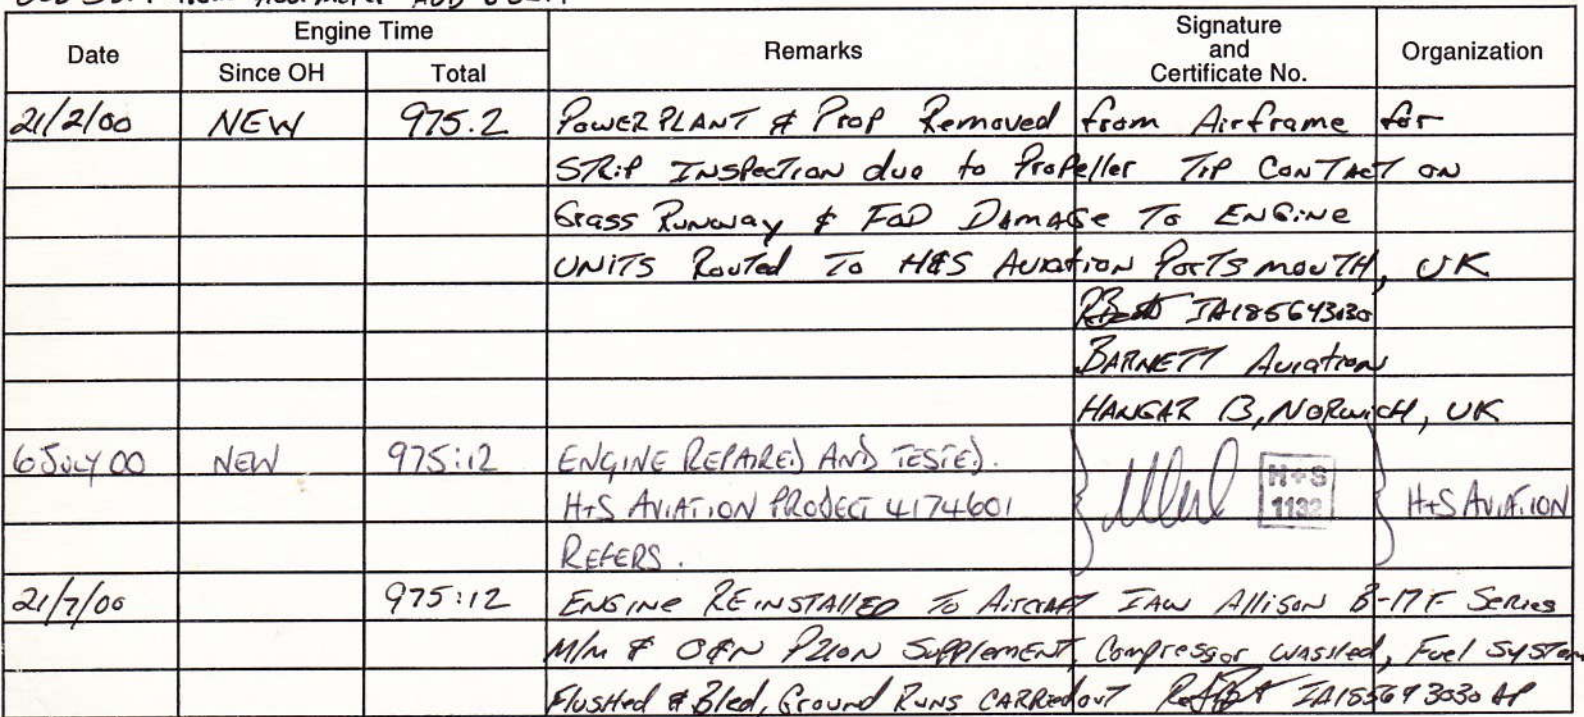 Date
Engine Time
Since OH
Total
Remarks
Signature
and
Certificate No.
Organization
21/2/00 NEW 975.2 POWERPLANT & Prop Removed from Airframe for
STRIP INSPECTION due to Propeller TIP CONTACT ON
Grass Runway & FOD DAMAGE TO ENGINE
UNITS Routed To H&S AVIATION PORTSMOUTH, UK
IA185643030
BARNETT Aviation
HANGAR B, NORWICH, UK
6 JULY 00 NEW 975:12 ENGINE REPAIRED AND TESTED.
H+S AVIATION PROJECT 4174601 H+S 1132 H+S AVIATION
REFERS.
21/7/00 975:12 ENGINE REINSTALLED TO AIRCRAFT IAW Allison B-17F Series
M/M & O&N P210N SUPPLEMENT, Compressor washed, Fuel System
Flushed & Bled, Ground Runs CARRIED out IA185643030 AP